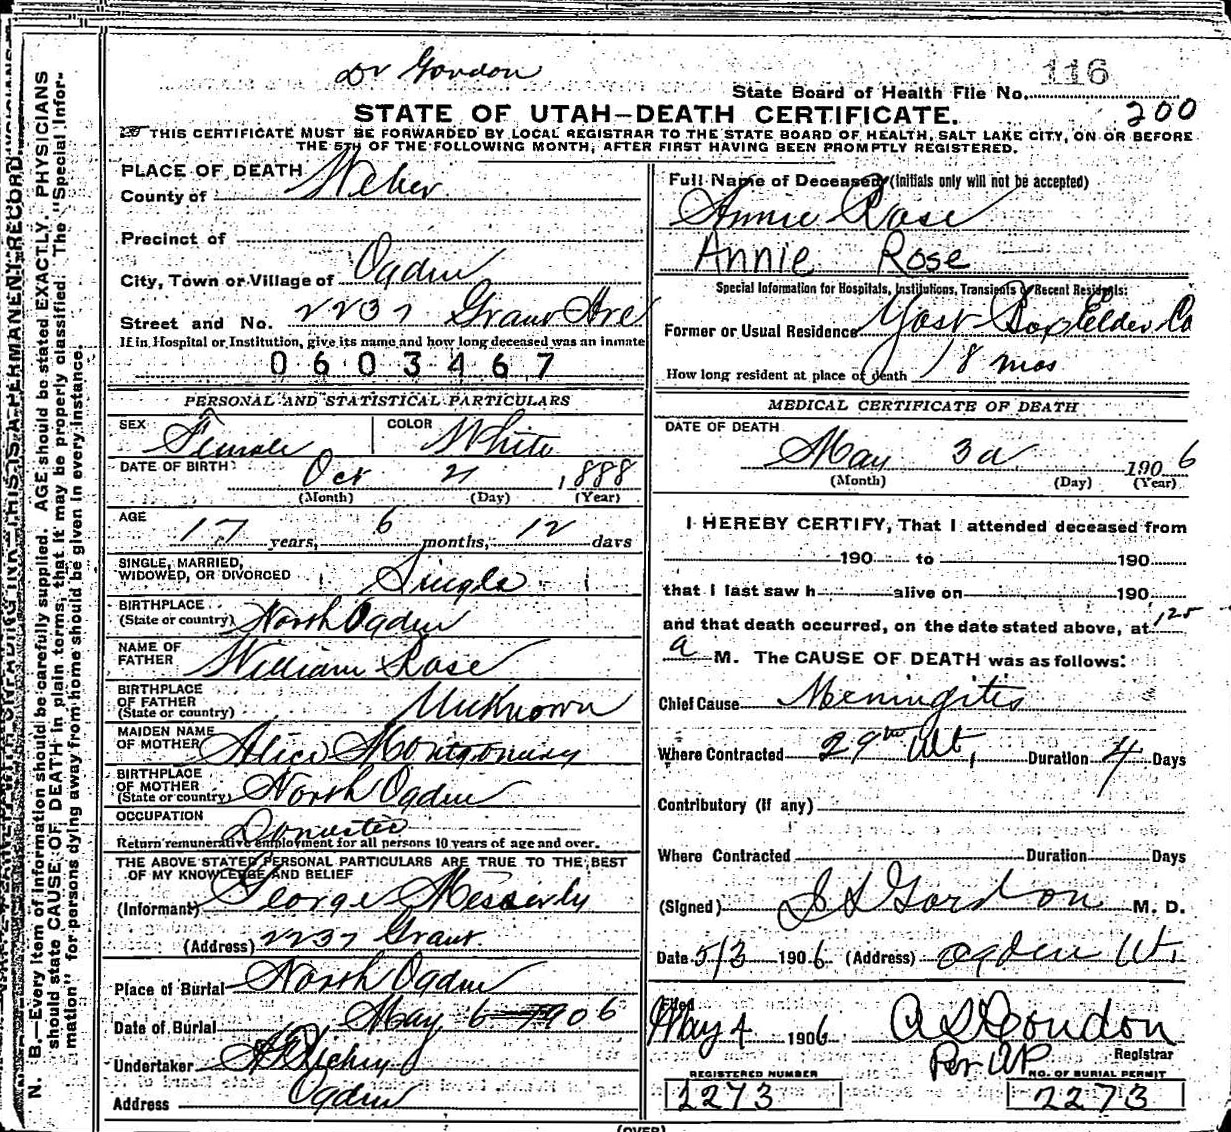 Dr Gordon
116
State Board of Health File No.
200
STATE OF UTAH—DEATH CERTIFICATE.
THIS CERTIFICATE MUST BE FORWARDED BY LOCAL REGISTRAR TO THE STATE BOARD OF HEALTH, SALT LAKE CITY, ON OR BEFORE
THE 5TH OF THE FOLLOWING MONTH, AFTER FIRST HAVING BEEN PROMPTLY REGISTERED.
PLACE OF DEATH
County of Weber
Precinct of
City, Town or Village of Ogden
Street and No. 2237 Grant Ave
If in Hospital or Institution, give its name and how long deceased was an inmate
0603467
PERSONAL AND STATISTICAL PARTICULARS
SEX Female COLOR White
DATE OF BIRTH Oct 21 1888
(Month) (Day) (Year)
AGE
17 years, 6 months, 12 days
SINGLE, MARRIED,
WIDOWED, OR DIVORCED Single
BIRTHPLACE
(State or country) North Ogden
NAME OF
FATHER William Rose
BIRTHPLACE
OF FATHER
(State or country) Unknown
MAIDEN NAME
OF MOTHER Alice Montgomery
BIRTHPLACE
OF MOTHER
(State or country) North Ogden
OCCUPATION Domestic
Return remunerative employment for all persons 10 years of age and over.
THE ABOVE STATED PERSONAL PARTICULARS ARE TRUE TO THE BEST
OF MY KNOWLEDGE AND BELIEF
(Informant) George Messerly
(Address) 2237 Grant
Place of Burial North Ogden
Date of Burial May 6 1906
Undertaker
Address Ogden
Full Name of Deceased (initials only will not be accepted)
Annie Rose
Annie Rose
Special Information for Hospitals, Institutions, Transients or Recent Residents:
Former or Usual Residence Yost Box Elder Co
How long resident at place of death 18 mos
MEDICAL CERTIFICATE OF DEATH
DATE OF DEATH
May 3d 1906
(Month) (Day) (Year)
I HEREBY CERTIFY, That I attended deceased from
190 to 190
that I last saw h alive on 190
and that death occurred, on the date stated above, at 125
a M. The CAUSE OF DEATH was as follows:
Chief Cause Meningitis
Where Contracted 29th Ult, Duration 4 Days
Contributory (If any)
Where Contracted Duration Days
(Signed) Gordon M. D.
Date 5/3 1906 (Address) Ogden Ut.
Filed
May 4 1906 Gordon
Per Registrar
REGISTERED NUMBER NO. OF BURIAL PERMIT
2273 2273
(OVER)
N. B.—Every item of information should be carefully supplied. AGE should be stated EXACTLY. PHYSICIANS
should state CAUSE OF DEATH in plain terms, that it may be properly classified. The "Special Infor-
mation" for persons dying away from home should be given in every instance.
UNFADING INK—THIS IS A PERMANENT RECORD